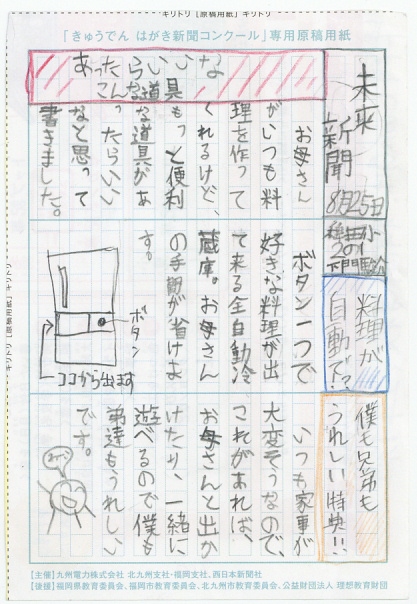 キリトリ【原稿用紙】キリトリ
「きゅうでん はがき新聞コンクール」専用原稿用紙
未来
新聞
8月25日
小
2の1
あったらいいな
こんな道具
お母さん
がいつも料
理を作って
くれるけど、
もっと便利
な道具があ
ったらいい
なと思って
書きました。
料理が
自動で!?
ボタン一つで
好きな料理が出
て来る全自動冷
蔵庫。お母さん
の手間が省けま
す。
ボタン
ココから出ます
僕も兄弟も
うれしい特典!!
いつも家事が
大変そうなので、
これがあれば、
お母さんと出か
けたり、一緒に
遊べるので僕も
弟達もうれしい
です。
【主催】九州電力株式会社 北九州支社・福岡支社、西日本新聞社
【後援】福岡県教育委員会、福岡市教育委員会、北九州市教育委員会、公益財団法人 理想教育財団